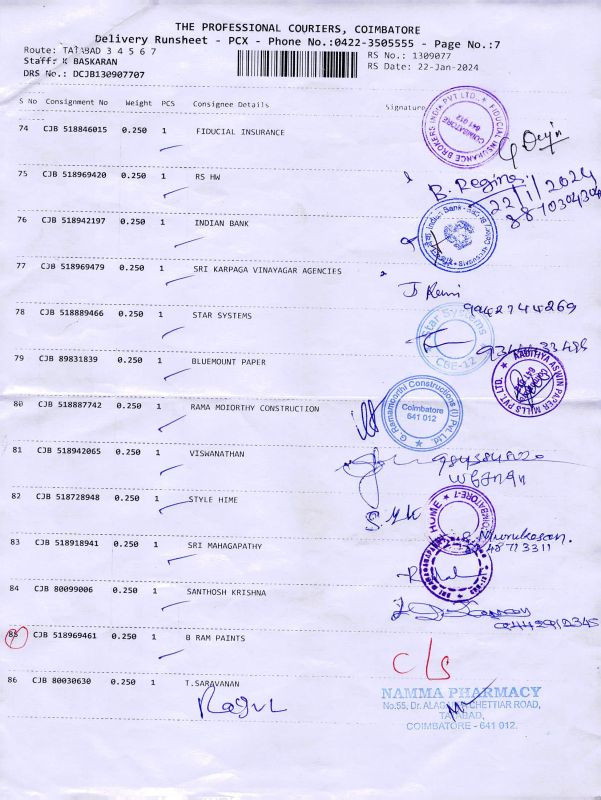 THE PROFESSIONAL COURIERS, COIMBATORE
Delivery Runsheet - PCX - Phone No.:0422-3505555 - Page No.:7
Route: TATABAD 3 4 5 6 7
RS No.: 1309077
Staff: K BASKARAN
RS Date: 22-Jan-2024
DRS No.: DCJB130907707
S No Consignment No Weight PCS Consignee Details Signature
74 CJB 518846015 0.250 1 FIDUCIAL INSURANCE
FIDUCIAL INSURANCE BROKERS INDIA PVT LTD.
COIMBATORE
641 012
75 CJB 518969420 0.250 1 RS HW
B. Regina
22/1/2024
76 CJB 518942197 0.250 1 INDIAN BANK
Indian Bank
77 CJB 518969479 0.250 1 SRI KARPAGA VINAYAGAR AGENCIES
78 CJB 518889466 0.250 1 STAR SYSTEMS
Star Systems
CBE-12
79 CJB 89831839 0.250 1 BLUEMOUNT PAPER
AADITHYA ASWIN PAPER MILLS PVT LTD.
80 CJB 518887742 0.250 1 RAMA MOIORTHY CONSTRUCTION
G. Ramamoorthi Constructions (I) Pvt Ltd
Coimbatore
641 012
81 CJB 518942065 0.250 1 VISWANATHAN
82 CJB 518728948 0.250 1 STYLE HIME
HOME
COIMBATORE-7
83 CJB 518918941 0.250 1 SRI MAHAGAPATHY
84 CJB 80099006 0.250 1 SANTHOSH KRISHNA
85 CJB 518969461 0.250 1 B RAM PAINTS
C/S
86 CJB 80030630 0.250 1 T.SARAVANAN
Ragul
NAMMA PHARMACY
No.55, Dr. CHETTIAR ROAD,
TATABAD,
COIMBATORE - 641 012.